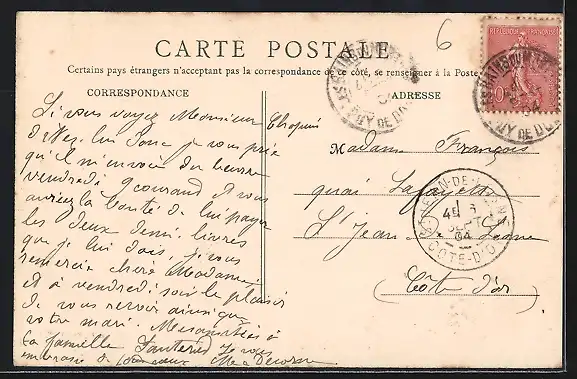 CARTE POSTALE
Certains pays étrangers n'acceptant pas la correspondance de ce côté, se renseigner à la Poste
CORRESPONDANCE
ADRESSE
6
REPUBLIQUE FRANÇAISE
10
PUY DE DOME
PUY DE DOME
Si vous voyez Monsieur Chopin
dites lui donc je vous prie
qu'il m'envoie du beurre
vendredi 9 courant & vous
auriez la bonté de lui payer
les deux demi-livres
que je lui dois, je vous
remercie chère Madame,
et à vendredi soir le plaisir
de vous revoir ainsi que
votre mari. Mes amitiés à
la famille je vous
embrasse
Madame François
quai Lafayette
St Jean de Losne
(Côte d'or)
ST JEAN-DE-LOSNE
SEPT
04
COTE-D'OR